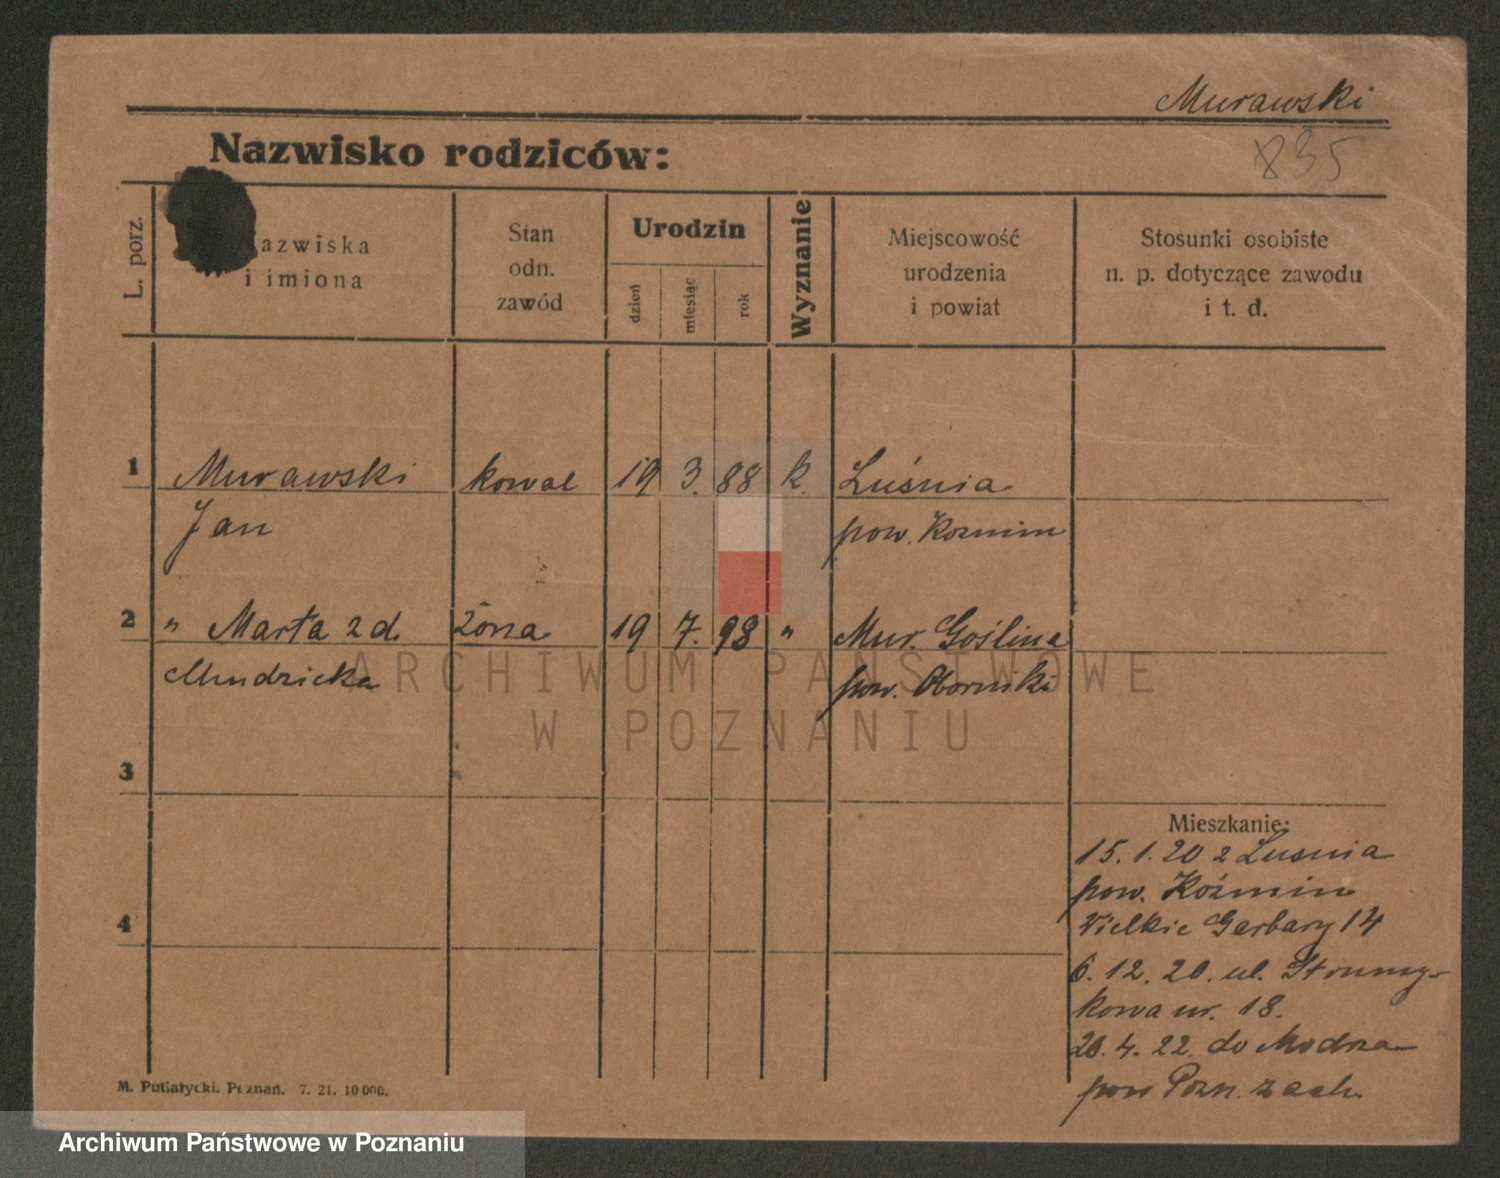 Murawski
835
Nazwisko rodziców:
L. porz.
Nazwiska
i imiona
Stan
odn.
zawód
Urodzin
dzień
miesiąc
rok
Wyznanie
Miejscowość
urodzenia
i powiat
Stosunki osobiste
n. p. dotyczące zawodu
i t. d.
1 Murawski kowal 19 3. 88 k. Luśnia
Jan pow. Kozmin
2 " Marta z d. żona 19 7. 98 " Mur. Goślina
Mudzicka pow. Oborniki
3
4
Mieszkanie:
15. 1. 20 z Lusnia
pow. Koźmin
Wielkie Garbary 14
6. 12. 20. ul. Strumy-
kowa nr. 18.
20. 4. 22. do Modrza
pow Pozn. zach.
M. Putiatycki. Poznań. 7. 21. 10 000.
ARCHIWUM PAŃSTWOWE
W POZNANIU
Archiwum Państwowe w Poznaniu